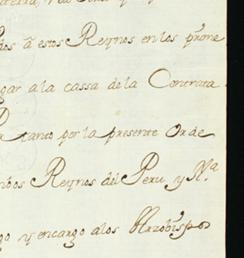 dos â estos Reynos en los prime
gar a la cassa de la Contrata
tanto por la presente Orde
Reynos del Peru y N.ª
go y encargo a los Arzobispos